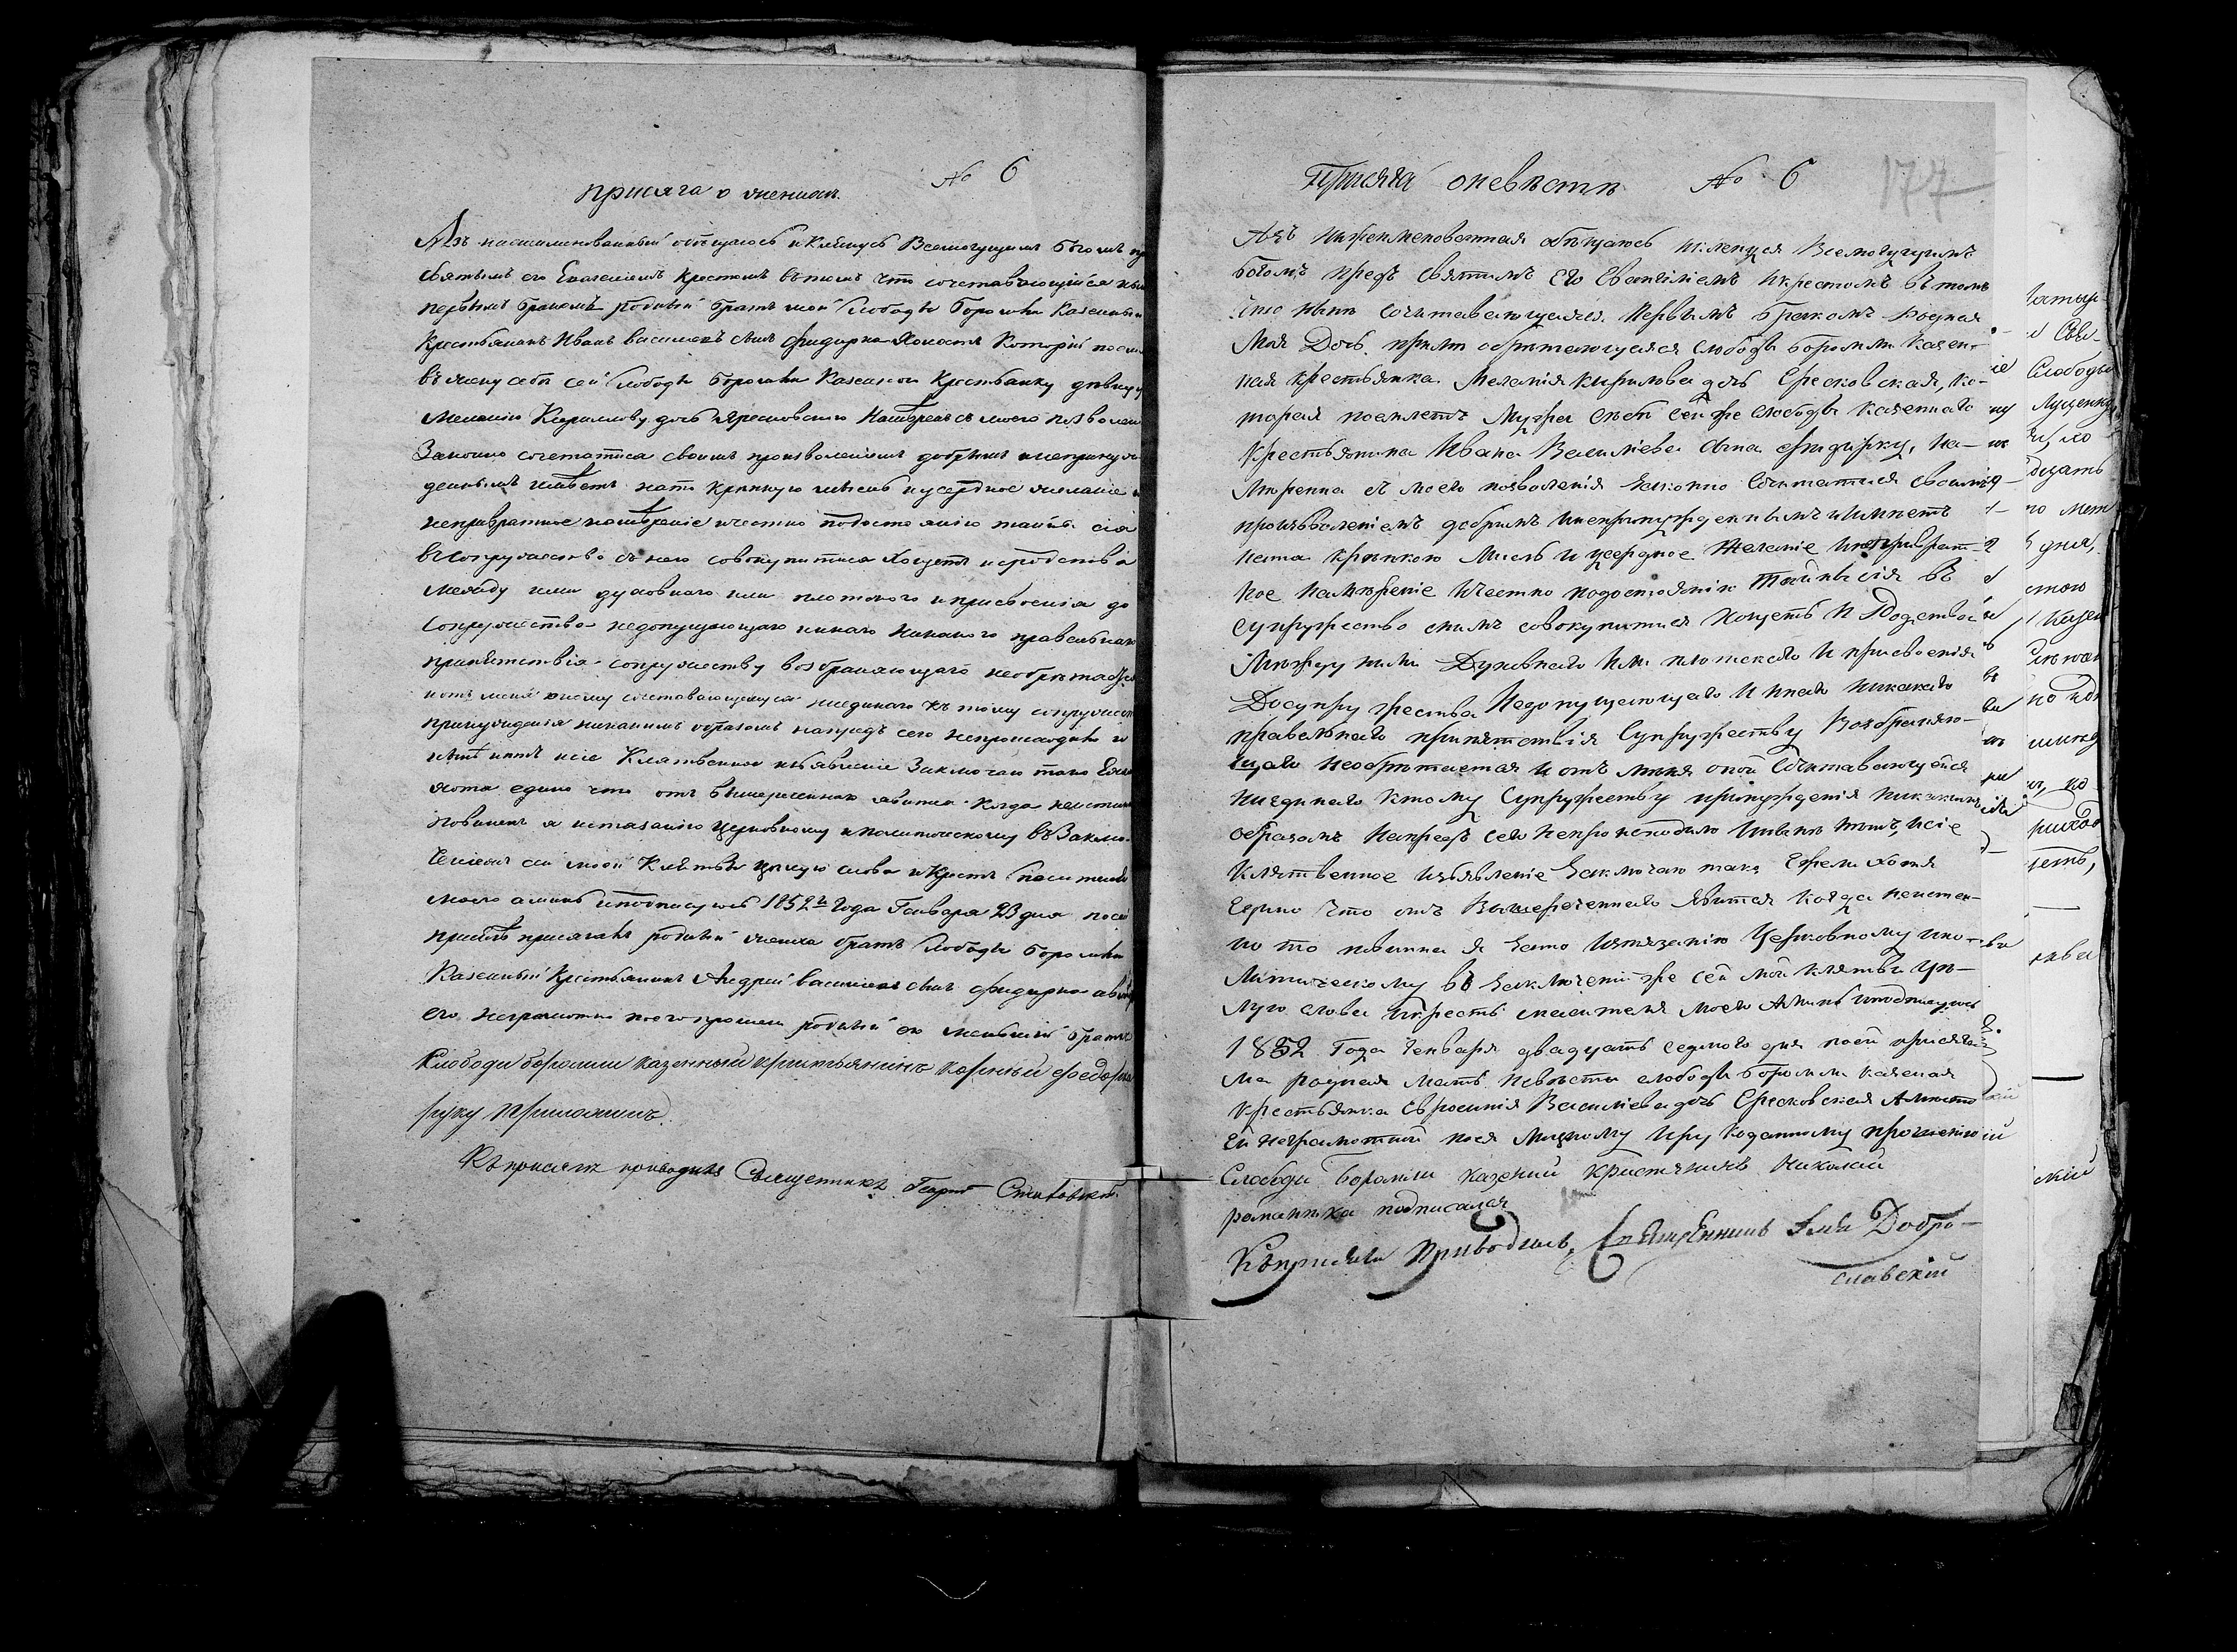 № 6
присяга о женихѣ.
Азъ нижеименованный обещаюсь и клянусь Всемогущимъ Богомъ
святымъ его Евангелиемъ крестомъ въ томъ что сочетавающийся
первымъ бракомъ родный братъ мой слободы Боромли Казенный
Крестьянинъ Иванъ Василиевъ сынъ Фидирко Холостъ Который поем
въ жену себѣ сей слободы Боромли Казенную Крестьянку девицу
Меланию Кирилову дочь Яресковскую Намѣренъ съ моего позволен
Законно сочетатися своимъ произволениемъ добрымъ и непринуж
деннымъ имѣетъ на то крѣпкую мысль и усердное желание и
непривратное намѣрение и честно по достоянию тайны сія
въ сопружество съ нею совокупитися хощетъ и сродствія
между ими духовнаго или плотского и присвоенія до
сопружества недопущающаго и инаго никакого правелнаго
припятствія сопружеству возбраняющаго необрѣтается
и отъ меня оному сочетавающемуся ниединаго къ тому сопружес
принуждения никакимъ образомъ напредъ сего непроисходило и
нынѣ нѣтъ и сіе Клятвенное изъявление Заключаю тако Ежели
хотя едино что отъ вышереченнаго явится когда неистинно
повиненъ я истязанію церковному и политическому въ Заклю-
чение же сей моей Клятвы цѣлую слова и Крестъ спасителя
моего аминь и подписуюсь 1852го Года Генваря 23 дня по сей
присягѣ присягалъ родный жениха братъ слободы Боромли
Казенный Крестьянинъ Андрей Василиевъ сынъ Фидирко а вмѣсто
его неграмотна по его прошению родный его меньший братъ
Слободи боромли казенный крестьянинъ Корнѣй Федорка
руку приложилъ.
Къ присягѣ приводилъ Священникъ Георгий
Присяга о невѣстѣ № 6
177
Азъ нижеименованная обѣщаюсь и кленуся Всемогущимъ
Богомъ предъ святымъ его Евангіліемъ и крестомъ въ томъ
что нынѣ сочитавающуаяся первымъ бракомъ родная
моя дочь при мнѣ обрѣтающуаяся слободы Боромли казен-
ная крестьянка Меланія Кирилова дочь Ересковская, ко-
торая поемлетъ мужа себѣ сей же слободы казеннаго
крестьянина Ивана Василіева сына Фидирку, на-
мѣренна съ моего позволенія законно сочитатися своимъ
произволеніемъ добримъ и непринужденнымъ и имѣетъ
на то крѣпкою мисль и усердное желаніе и неприврат-
ное намѣреніе и честно по достоянію тайны сія въ
супружество снимъ совокупитися хощетъ и родства
между ними духовнаго или плотскаго и присвоенія
до супружества недопущающаго и инаго никакаго
правельнаго припятствія супружеству возбраняю-
щаго необрѣтается и отъ мѣня оной сочитавающуейся
ниединаго к тому супружеству принужденія никакимъ
образомъ напредъ сего непроисходило и нынѣ нѣтъ, и сіе
клятвенное изъявленіе заключаю такъ Ежели хотя
едино что отъ вышереченнаго явится когда неистин-
но то повинна я зато истязанію Церковному и по-
литическому въ заключеніи же сей моей клятвы цѣ-
лую слова и крестъ спасителя моего Аминь и подписуюсь
1852 Года Генваря двадцать седмого дня по сей присяга-
ла родная мать невѣсти слободы Боромли казенная
крестьянка Евросинія Василіева дочь Ересковская а вмѣсто
ей неграмотной по ея личному и рукоданному прошению
Слободи Боромли казений кристянинъ Николай
романенка подписался
Къ присяги приводилъ, Священникъ Илія Добро-
славскій